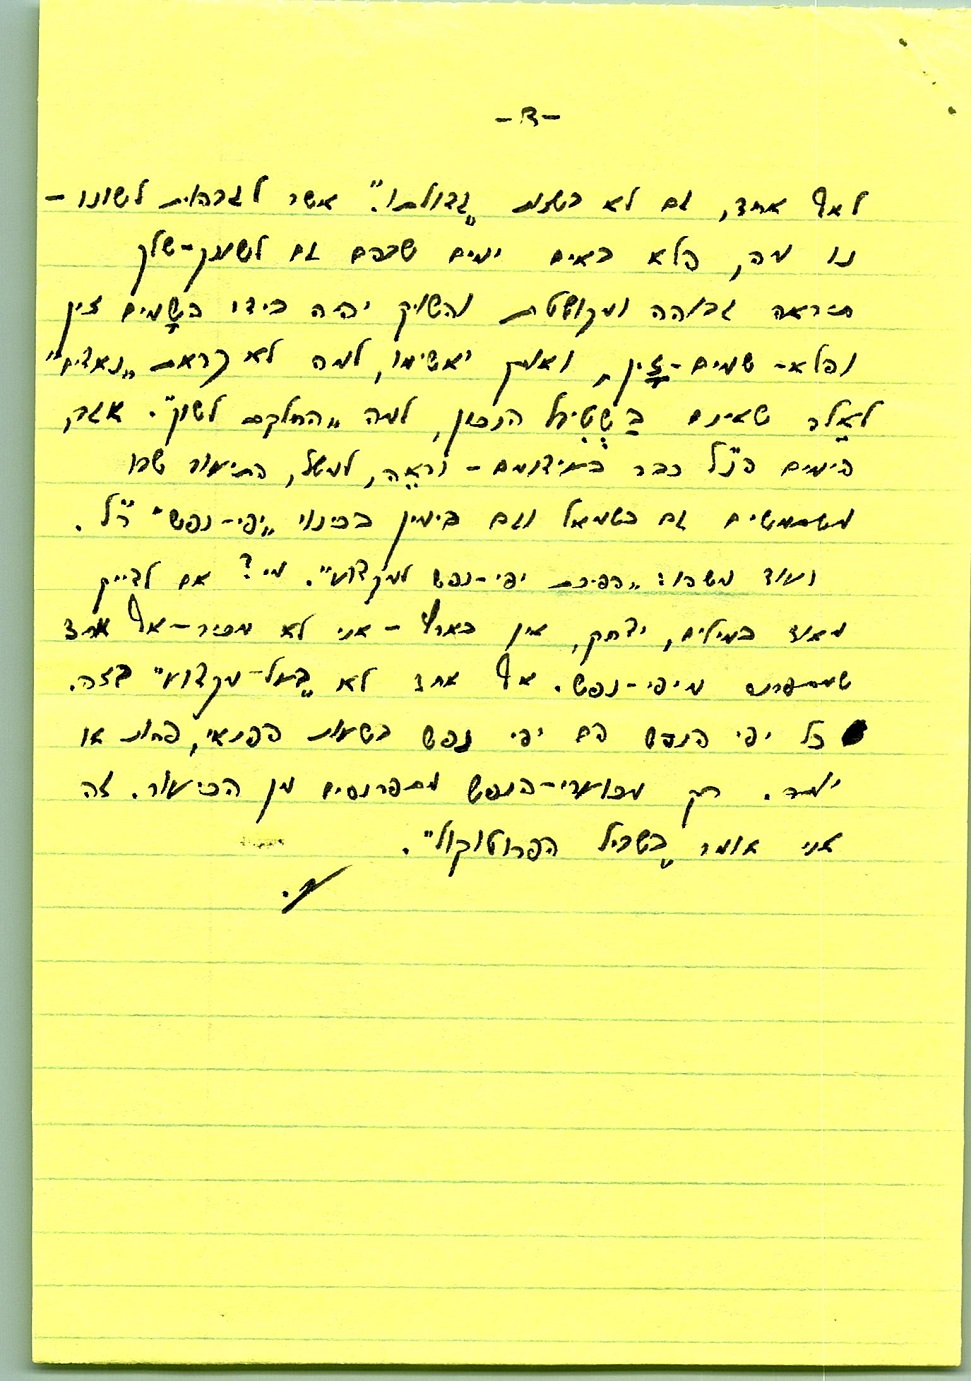 -ד-
לאף אחד, גם לא בשנות "גדולתו". אשר לגבהות לשונו -
נו מה, הלא באים ימים שבהם גם לשונך-שלך
תיראה גבוהה ומקושטת והשוק יהיה בידי השמים זין
והלא-שמים-זין, ואותך יאשימו, למה לא קראת "נאדים"
לאלה שאינם בשטיח הנכון, למה "החלקת לשון". אגב,
הימים הנ"ל כבר בעיצומם - וראה, למשל, התיעוב שבו
משתמשים גם בשמאל וגם בימין בכינוי "יפי-נפש" ר"ל.
ועוד משהו: "הפיכת יפי-נפש למקצוע". מי? אם לדייק
מאוד במילים, יצחק, אין בארץ - אני לא מכיר - אף אחד
שמתפרנס מיפי-נפש. אף אחד לא "בעל-מקצוע" בזה.
כל יפי הנפש הם יפי נפש בשעות הפנאי, פחות או
יותר. רק מכוערי-הנפש מתפרנסים מן הכיעור. זה
אני אומר "בשביל הפרוטוקול".